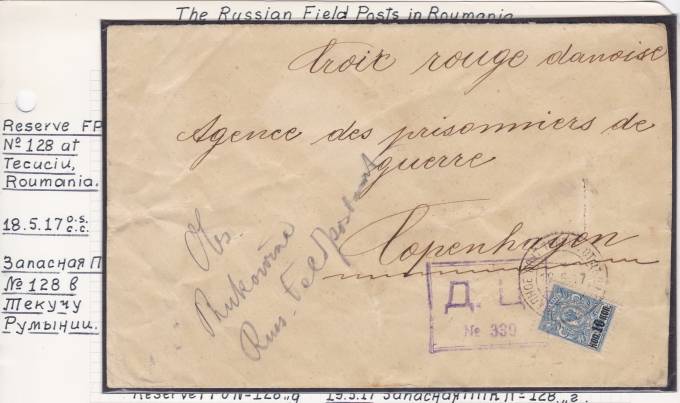 The Russian Field Posts in Roumania
Reserve FP
№ 128 at
Tecuciu,
Roumania.
18.5.17 o.s.
c.c.
Запасная П
№ 128 в
Текучу
Румынии.
Croix rouge danoise
Agence des prisonniers de
guerre
Copenhagen
Abs.
Bukowine
Russ. Feldpostamt
Д. Ц
№ 339
10 коп.